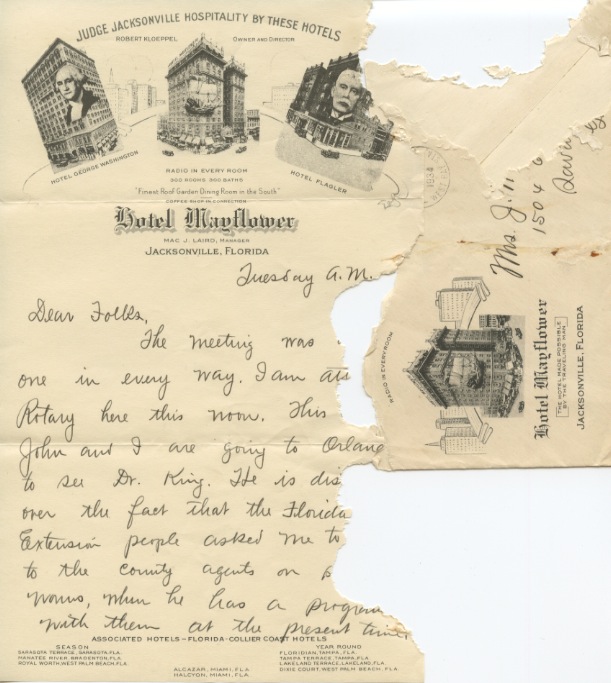 JUDGE JACKSONVILLE HOSPITALITY BY THESE HOTELS
ROBERT KLOEPPEL OWNER AND DIRECTOR
HOTEL GEORGE WASHINGTON
HOTEL FLAGLER
RADIO IN EVERY ROOM
300 ROOMS 300 BATHS
"Finest Roof Garden Dining Room in the South"
COFFEE SHOP IN CONNECTION
Hotel Mayflower
MAC J. LAIRD, MANAGER
JACKSONVILLE, FLORIDA
Tuesday A.M.
Dear Folks,
The meeting was
one in every way. I am att
Rotary here this noon. This
John and I are going to Orland
to see Dr. King. He is dis
over the fact that the Florida
Extension people asked me to
to the county agents on
worms, when he has a program
with them at the present time.
ASSOCIATED HOTELS-FLORIDA-COLLIER COAST HOTELS
SEASON
SARASOTA TERRACE, SARASOTA, FLA.
MANATEE RIVER, BRADENTON, FLA.
ROYAL WORTH, WEST PALM BEACH, FLA.
ALCAZAR, MIAMI, FLA.
HALCYON, MIAMI, FLA.
YEAR ROUND
FLORIDIAN, TAMPA, FLA.
TAMPA TERRACE, TAMPA, FLA.
LAKELAND TERRACE, LAKELAND, FLA.
DIXIE COURT, WEST PALM BEACH, FLA.
Mrs. Jim
1504
RADIO IN EVERY ROOM
Hotel Mayflower
THE HOTEL MADE POSSIBLE
BY THE TRAVELING MAN
JACKSONVILLE, FLORIDA